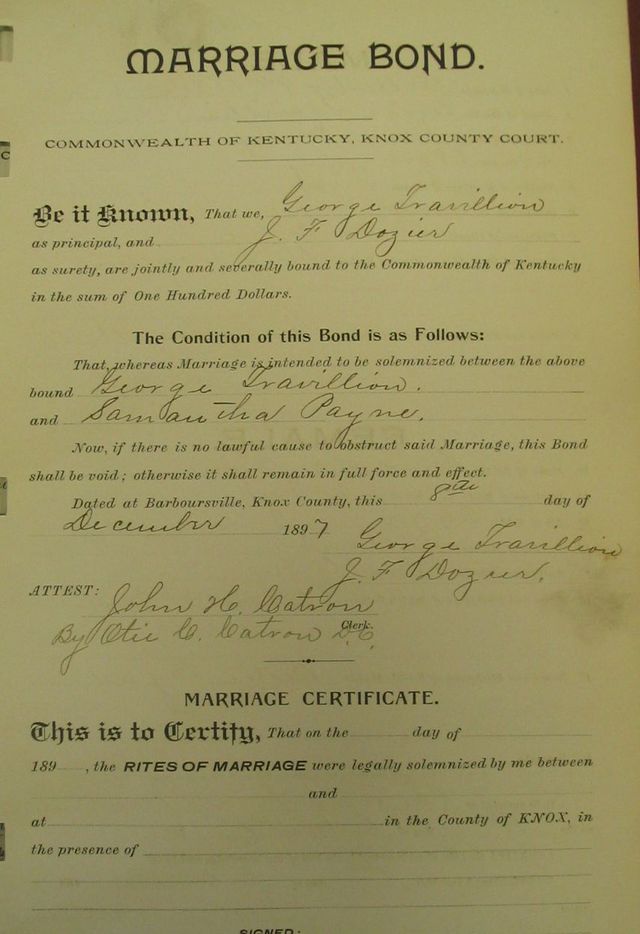 MARRIAGE BOND.
COMMONWEALTH OF KENTUCKY, KNOX COUNTY COURT.
Be it Known, That we, George Travillion
as principal, and J. F Dozier
as surety, are jointly and severally bound to the Commonwealth of Kentucky
in the sum of One Hundred Dollars.
The Condition of this Bond is as Follows:
That, whereas Marriage is intended to be solemnized between the above
bound George Travillion.
and Samantha Payne.
Now, if there is no lawful cause to obstruct said Marriage, this Bond
shall be void; otherwise it shall remain in full force and effect.
Dated at Barboursville, Knox County, this 8th day of
December 1897
George Travillion
J. F Dozier.
ATTEST: John H. Catron
Clerk.
By Otie C. Catron D.C.
MARRIAGE CERTIFICATE.
This is to Certify, That on the day of
189 , the RITES OF MARRIAGE were legally solemnized by me between
and
at in the County of KNOX, in
the presence of
SIGNED: